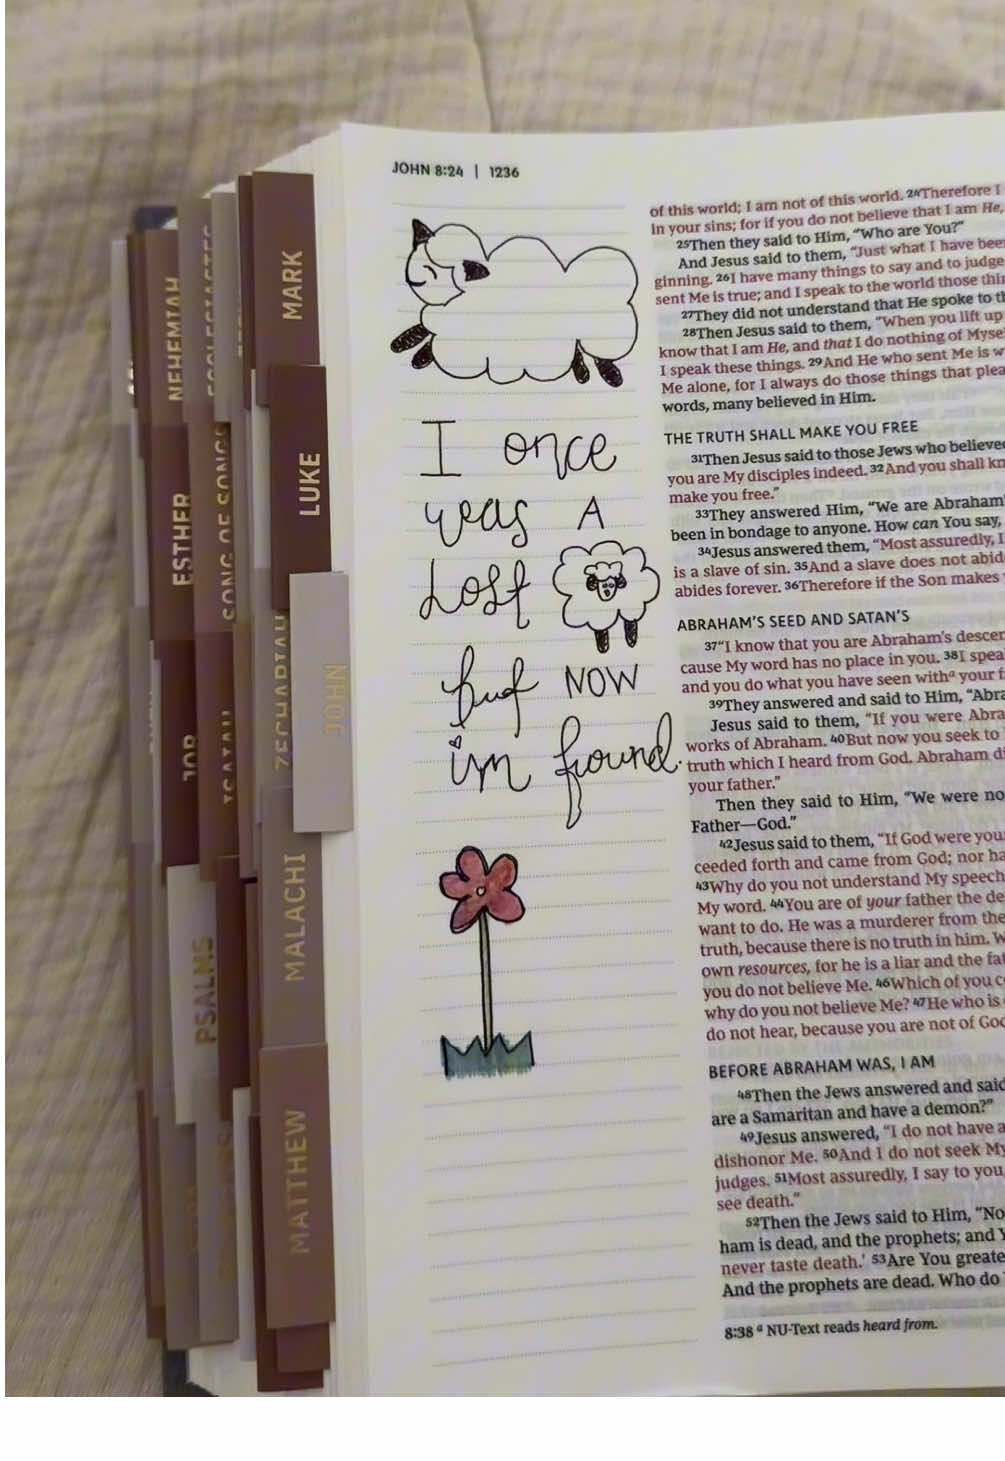 JOHN 8:24 | 1236
MARK
LUKE
JOHN
NEHEMIAH
ECCLESIASTES
ESTHER
SONG OF SONGS
ZECHARIAH
JOB
ISAIAH
MALACHI
PSALMS
MATTHEW
I once
was A
Lost
but NOW
im found.
of this world; I am not of this world. 24Therefore I
in your sins; for if you do not believe that I am He,
25Then they said to Him, “Who are You?”
And Jesus said to them, “Just what I have bee
ginning. 26I have many things to say and to judge
sent Me is true; and I speak to the world those thin
27They did not understand that He spoke to th
28Then Jesus said to them, “When you lift up
know that I am He, and that I do nothing of Myse
I speak these things. 29And He who sent Me is w
Me alone, for I always do those things that plea
words, many believed in Him.
THE TRUTH SHALL MAKE YOU FREE
31Then Jesus said to those Jews who believed
you are My disciples indeed. 32And you shall kn
make you free.”
33They answered Him, “We are Abraham’
been in bondage to anyone. How can You say,
34Jesus answered them, “Most assuredly, I
is a slave of sin. 35And a slave does not abid
abides forever. 36Therefore if the Son makes
ABRAHAM’S SEED AND SATAN’S
37“I know that you are Abraham’s descen
cause My word has no place in you. 38I spea
and you do what you have seen witha your f
39They answered and said to Him, “Abra
Jesus said to them, “If you were Abra
works of Abraham. 40But now you seek to
truth which I heard from God. Abraham di
your father.”
Then they said to Him, “We were no
Father—God.”
42Jesus said to them, “If God were you
ceeded forth and came from God; nor ha
43Why do you not understand My speech
My word. 44You are of your father the de
want to do. He was a murderer from the
truth, because there is no truth in him. W
own resources, for he is a liar and the fat
you do not believe Me. 46Which of you c
why do you not believe Me? 47He who is
do not hear, because you are not of God
BEFORE ABRAHAM WAS, I AM
48Then the Jews answered and said
are a Samaritan and have a demon?”
49Jesus answered, “I do not have a
dishonor Me. 50And I do not seek My
judges. 51Most assuredly, I say to you,
see death.”
52Then the Jews said to Him, “No
ham is dead, and the prophets; and Y
never taste death.’ 53Are You greate
And the prophets are dead. Who do
8:38 a NU-Text reads heard from.